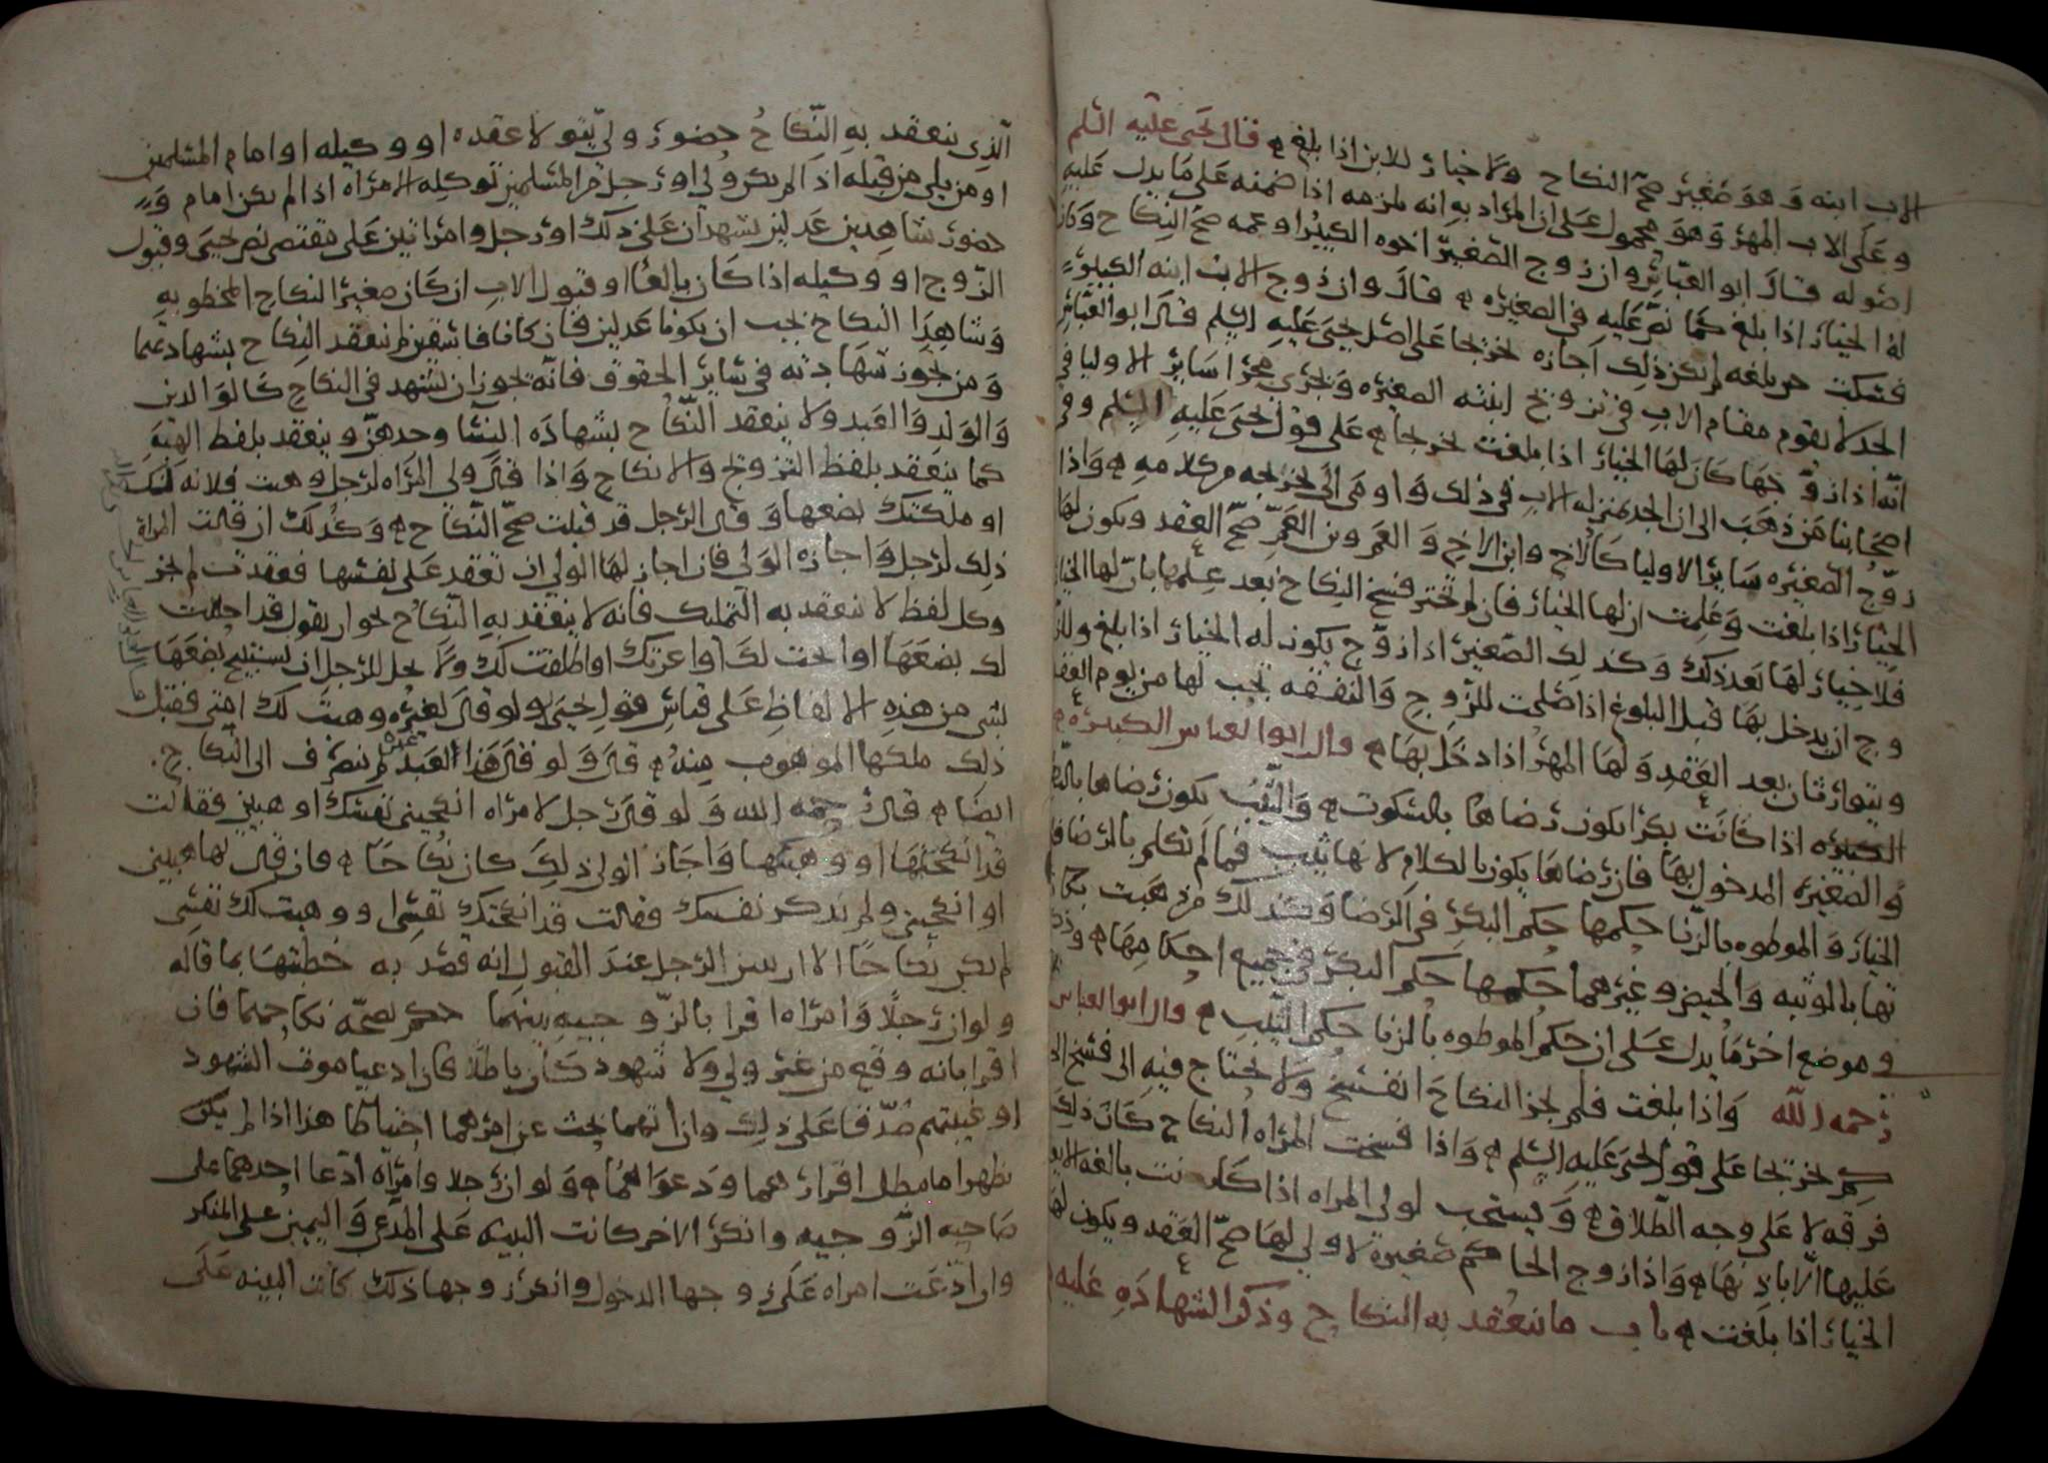 الاب ابنه وهو صغير صح النكاح ولا خيار للابن اذا بلغ ه قال يحيى عليه السلم
وعلى الاب المهر وهو محمول على ان المراد به انه يلزمه اذا ضمنه على ما يدل عليه
اصوله قال ابو العباس وان زوج الصغير اخوه الكبير او عمه صح النكاح وكان
له الخيار اذا بلغ كما نص عليه في الصغيره ه قال وان زوج الاب ابنه الكبير
فسكت حين بلغه لم يكن ذلك اجازه تخريجا على اصل يحيى عليه السلم قال ابو العباس
الجد لا يقوم مقام الاب في تزويج ابنته الصغيره ويجري مجرا سائر الاوليا في
انه اذا زوجها كان لها الخيار اذا بلغت تخريجا ه على قول يحيى عليه السلم وفي
اصحابنا من ذهب الى ان الجد بمنزله الاب في ذلك واومى الى تخريجه من كلامه ه واذا
زوج الصغيره سائر الاوليا كالاخ وابن الاخ والعم وبن العم صح العقد ويكون لها
الخيار اذا بلغت وعلمت ان لها الخيار فان لم تختر فسخ النكاح بعد علمها بان لها الخيار
فلا خيار لها بعد ذلك وكذلك الصغير اذا زوج يكون له الخيار اذا بلغ وللز
وج ان يدخل بها قبل البلوغ اذا صلحت للزوج والنفقه تجب لها من يوم العقد
ويتوارثان بعد العقد ولها المهر اذا دخل بها ه قال ابو العباس الكبيره
الكبيره اذا كانت بكرا يكون رضاها بالسكوت ه والثيب يكون رضاها
والصغيره المدخول بها فان رضاها يكون بالكلام لانها ثيب فما لم تكلم بالرضا فلها
الخيار والموطوه بالزنا حكمها حكم البكر في الرضا وكذلك من ذهبت بكار
تها بالوثبه والحيض وغيرهما حكمها حكم البكر في جميع احكامها ه وذكر
في موضع اخر ما يدل على ان حكم الموطوه بالزنا حكم الثيب ه قال ابو العباس
رحمه الله واذا بلغت فلم تجز النكاح انفسخ ولا يحتاج فيه الى فسخ
تخريجا على قول يحيى عليه السلم ه واذا فسخت المراه النكاح كان ذلك
فرقه لا على وجه الطلاق ه ويستحب لولي المراه اذا كانت بالغه الا يعقد
عليها الا باذنها ه واذا زوج الحاكم صغيرة لا ولي لها صح العقد ويكون لها
الخيار اذا بلغت ه باب ما ينعقد به النكاح وذكر الشهاده عليه
الذي ينعقد به النكاح حضور ولي يتولا عقده او وكيله او امام المسلمين
او من يلي من قبله اذا لم يكن ولي او رجل من المسلمين توكله المراة اذا لم يكن امام و
حضور شاهدين عدلين يشهدان على ذلك او رجل وامراتين على مقتضى نص يحيى وقبول
الزوج او وكيله اذا كان بالغا او قبول الاب ان كان صغيرا النكاح المخطوب به
وشاهدا النكاح يجب ان يكونا عدلين فان كانا فاسقين لم ينعقد النكاح بشهادتهما
ومن تجوز شهادته في سائر الحقوق فانه تجوز ان يشهد في النكاح كالوالدين
والولد والعبد ولا ينعقد النكاح بشهاده النسا وحدهن وينعقد بلفظ الهبه
كما ينعقد بلفظ التزويج والانكاح واذا قال ولي المراه لرجل وهبت فلانه لك
او ملكتك بضعها وقال الرجل قد قبلت صح النكاح ه وكذلك ان قالت المراة
ذلك لرجل واجازه الولي فان اجاز لها الولي ان تعقد على نفسها فعقدت لم يجز
وكل لفظ لا ينعقد به التمليك فانه لا ينعقد به النكاح نحو ان يقول قد احللت
لك بضعها او ابحت لك او اعرتك او اطلقت لك ولا يحل للرجل ان يستبيح بضعها
بشي من هذه الالفاظ على قياس قول يحيى ولو قال لغيره وهبت لك امتي فقبل
ذلك ملكها الموهوب منه ه قال ولو قال هذا العبد لم ينصرف الى النكاح
ايضا ه قال رحمه الله ولو قال رجل لامراه انكحيني نفسك او هبيني فقالت
قد انكحتها او وهبتكها واجاز الولي ذلك كان نكاحا ه وان قال لها هبيني
او انكحيني ولم يذكر نفسك فقالت قد انكحتك نفسي او وهبت لك نفسي
لم يكن نكاحا الا ان يبين الرجل عند القبول انه قصد به خطبتها بما قاله
ولو ان رجلا وامراه اقرا بالزوجيه بينهما حكم بصحه نكاحهما فان
اقرا بانه وقع من غير ولي ولا شهود كان باطلا فان ادعيا موت الشهود
او غيبتهم صدقا على ذلك وان اتهما بحث عن امرهما احتياطا هذا اذا لم يكن
يظهرا ما يبطل اقرارهما ودعواهما ه ولو ان رجلا وامراه ادعا احدهما على
صاحبه الزوجيه وانكر الاخر كانت البينه على المدعي واليمين على المنكر
وان ادعت امراه على زوجها الدخول وانكر زوجها ذلك كانت البينه على